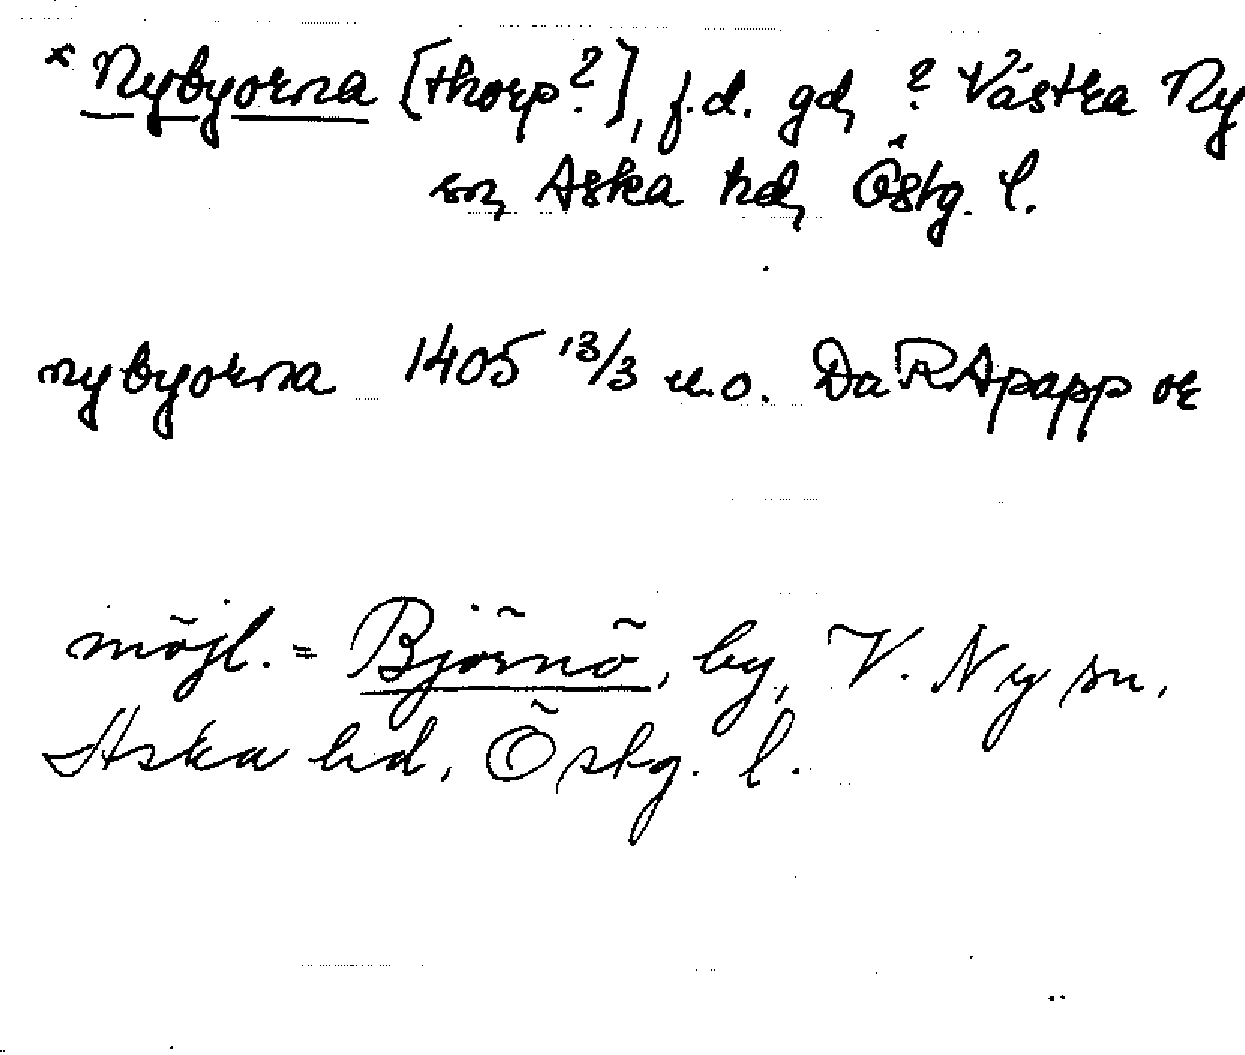 * Nybyorna [thorp?], f.d. gd, ? Västra Ny
sn, Aska hd, Östg. l.
nybyorna 1405 13/3 u.o. Da RApapp or
möjl. = Björnö, by, V. Ny sn,
Aska hd, Östg. l.